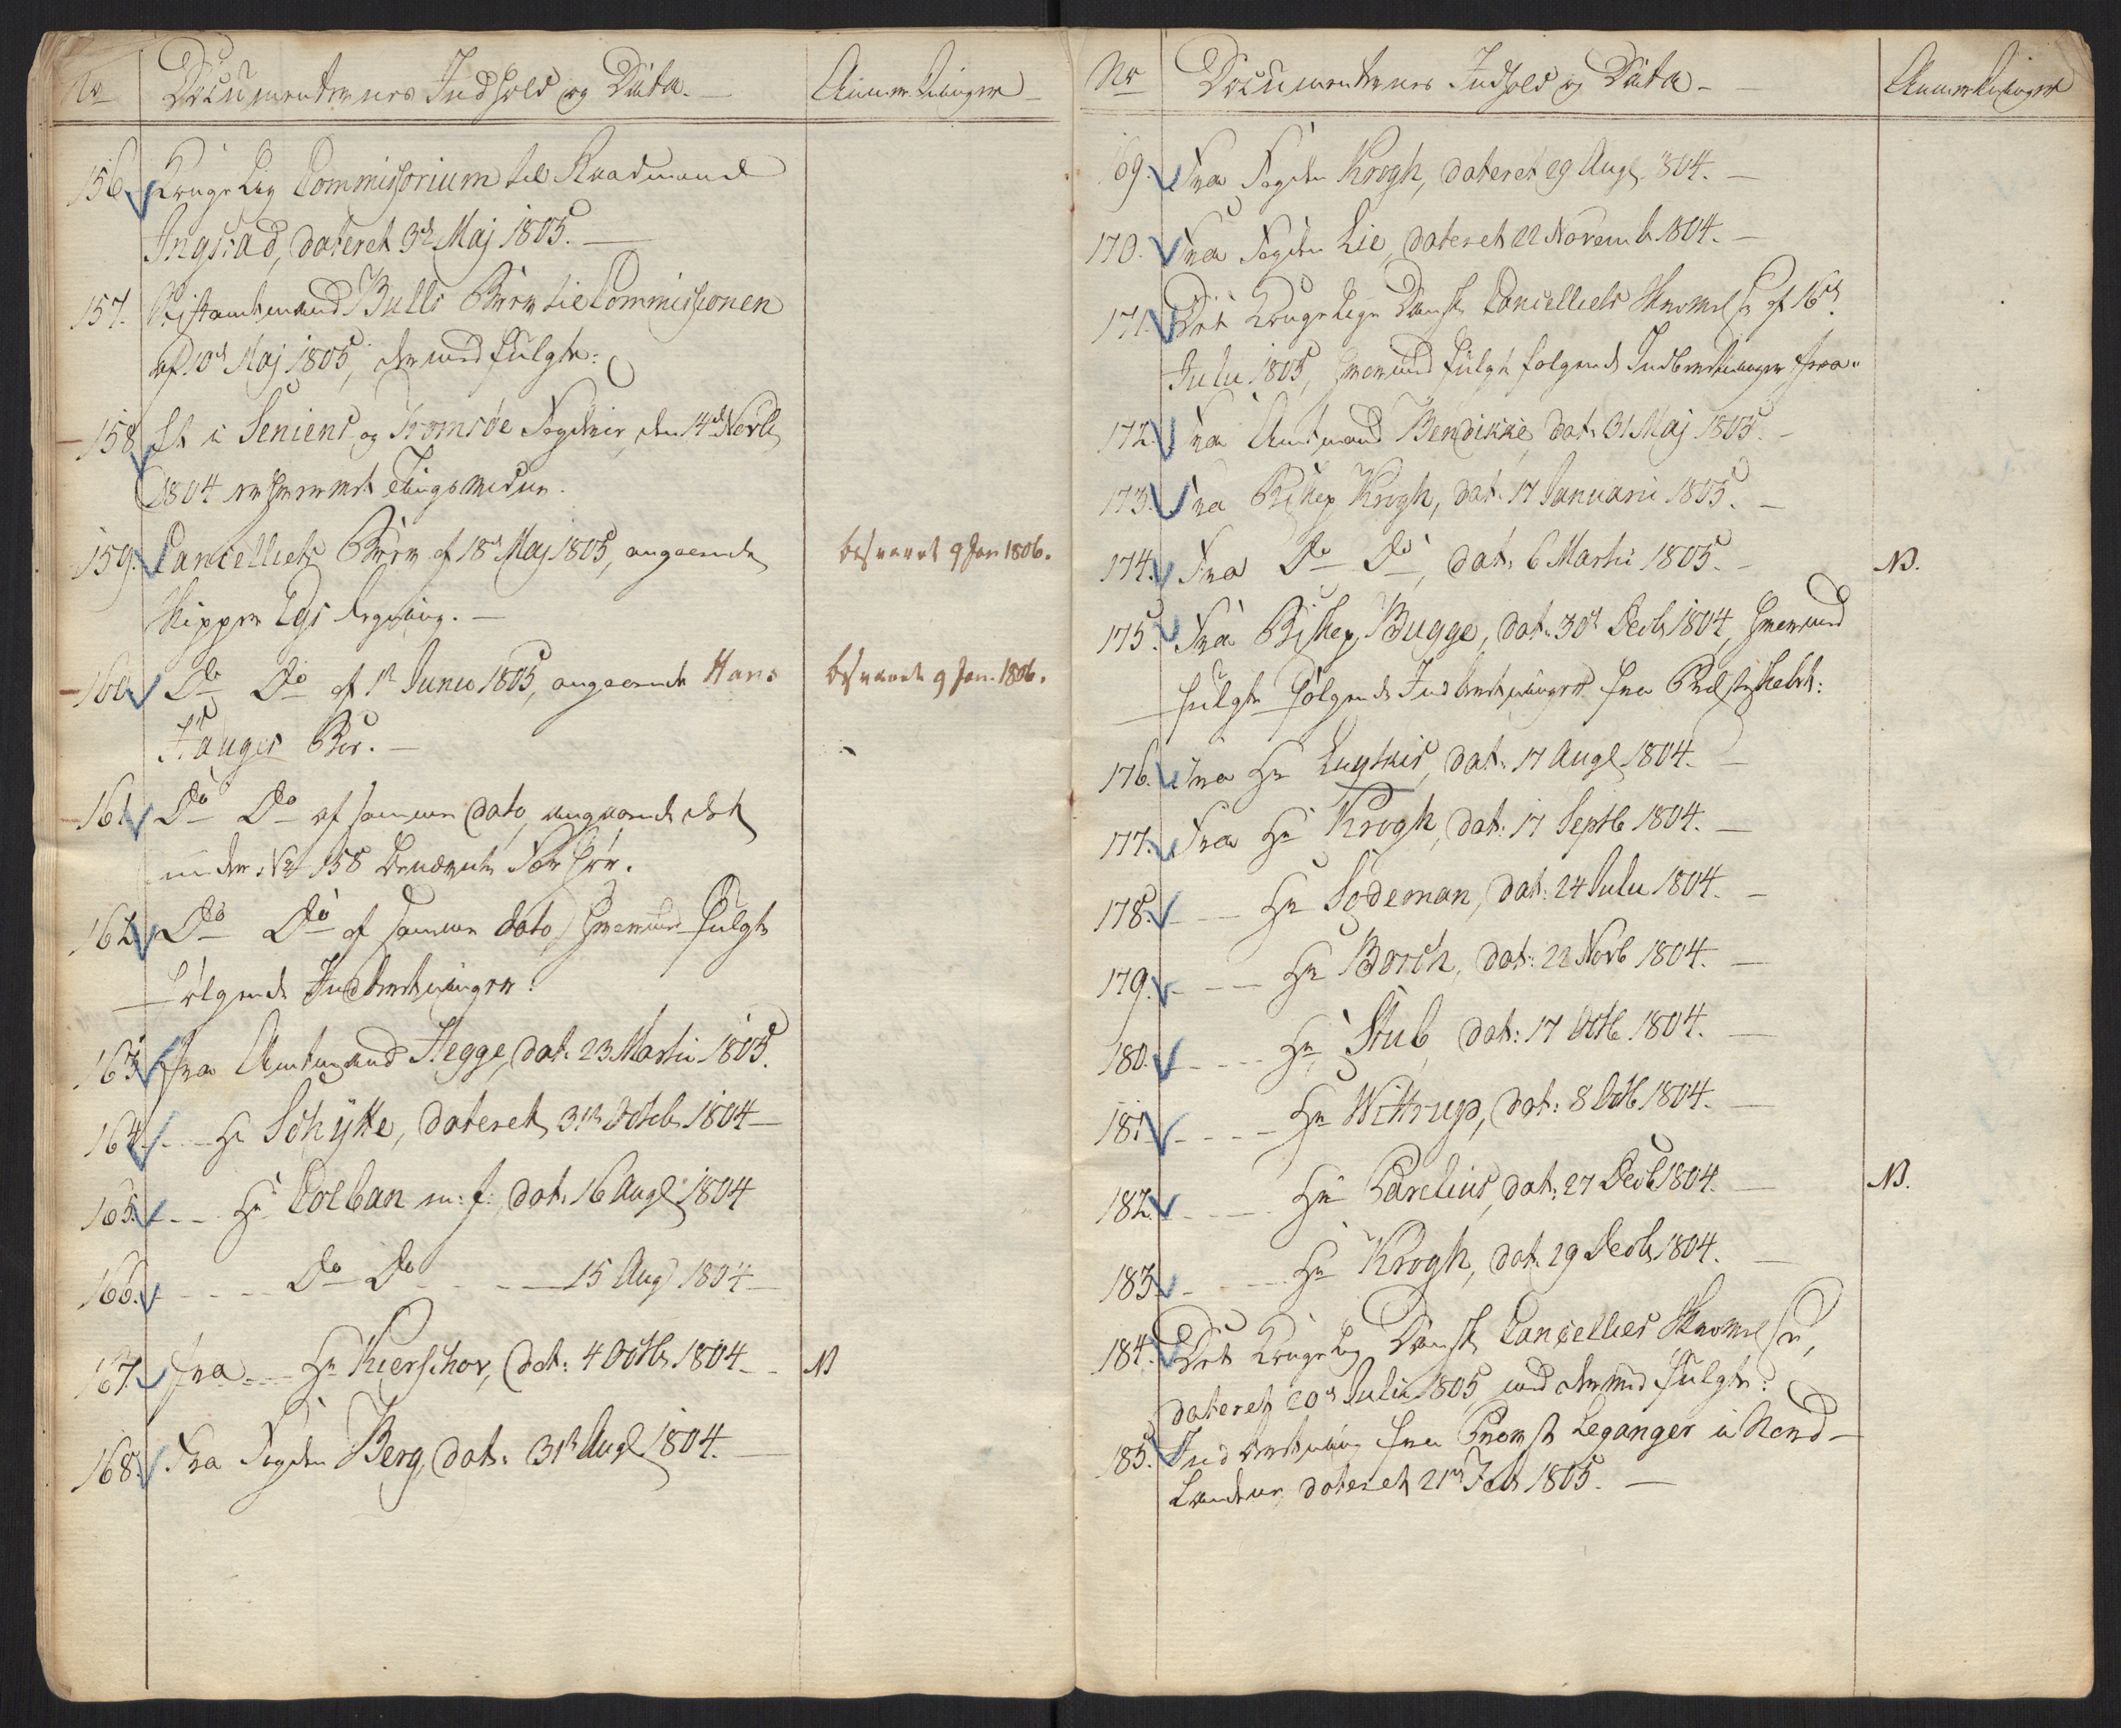 No Documenternes Indhold og Data. Anmerkninger
156. Kongelig Commissorium til Raadmand
Ingstad, dateret 3de Maj 1805.
157. Stiftamtmand Bulls Brev til Commissionen
af 10de Maj 1805, dermed fulgte:
158 Et i Seniens og Tromsøe Fogderie den 14de Novb
1804 Tingsvidne.
159. Cancelliets Brev af 18de Maj 1805, angaaende besvaret 9 Jan 1806.
Skipper Egs Regning.
160 Do Do af 1te Junio 1805, angaaende Hans besvaret 9 Jan. 1806.
161 Do Do af samme dato, angaaende det
under No 158 benævnte Forhør.
162 Do Do af samme dato, hvormed fulgte
følgende Indberetninger:
163 fra Amtmand Hegge, dat. 23 Martii 1805.
164. Hr Schytte, dateret 31te Octob 1804
165. Hr Colban m: f: dat. 16 Augl 1804
166. Do Do 15 Aug 1804
167. fra Hr Kierschov, dat: 4 Octb 1804 NB
168. Fra Fogden Berg, dat: 31te Augl 1804.
No Documenternes Indhold og Data Anmerkninger
169. Fra Fogden Krogh, dateret 29 Augl 804.
170. Fra Fogden Lie, dateret 22 Novemb 1804.
171. Det Kongelige Danske Cancellies Skrivelse af 16de
Julii 1805, hvormed fulgte følgende Indberetninger fra:
172. Fra Amtmand Bendikke, dat. 31 Maj 1805.
173. Fra Biskop Krogh, dat. 17 Januarii 1805.
174. Fra Do Do, dat. 6 Martii 1805. NB.
175. Fra Biskop Bugge, dat. 30te Decb 1804, hvormed
fulgte følgende Indberetninger fra
176. Fra Hr dat. 17 Augl 1804.
177. Fra Hr Krogh, dat. 17 Septb 1804.
178. Hr Sodeman, dat. 24 Julii 1804.
179. Hr Borch, dat: 22 Novb 1804.
180. Hr Stub, dat: 17 Octb 1804.
181 Hr Wittrup, dat: 8 Octb 1804.
182. Hr Parelius, dat: 27 Decb 1804. NB.
183. Hr Krogh, dat. 29 Decb 1804.
184. Det Kongelig Danske Cancellies Skrivelse,
dateret 20de Julii 1805, med dermed fulgte:
185. Indberetning fra Provst Leganger i Nord-
Landene, dateret 21de Feb 1805.